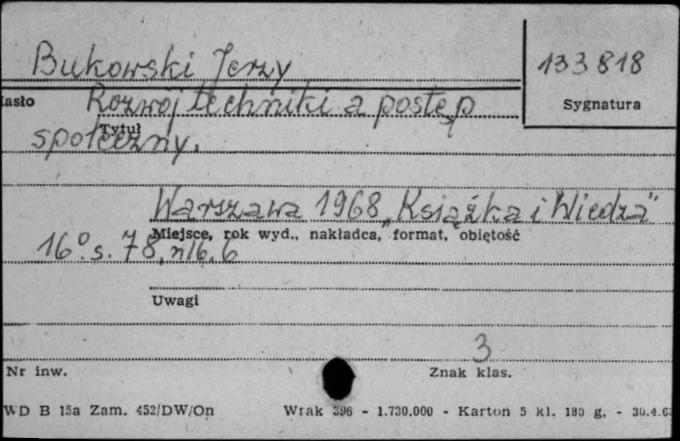 Bukowski Jerzy
133818
Hasło
Sygnatura
Rozwój techniki a postęp
Tytuł
społeczny.
Warszawa 1968 „Książka i Wiedza"
Miejsce, rok wyd., nakładca, format, objętość
16° s. 78, nlb. 6
Uwagi
3
Nr inw.
Znak klas.
WD B 15a Zam. 452/DW/On
Wrak 396 - 1.730.000 - Karton 5 kl. 180 g. - 30.4.63